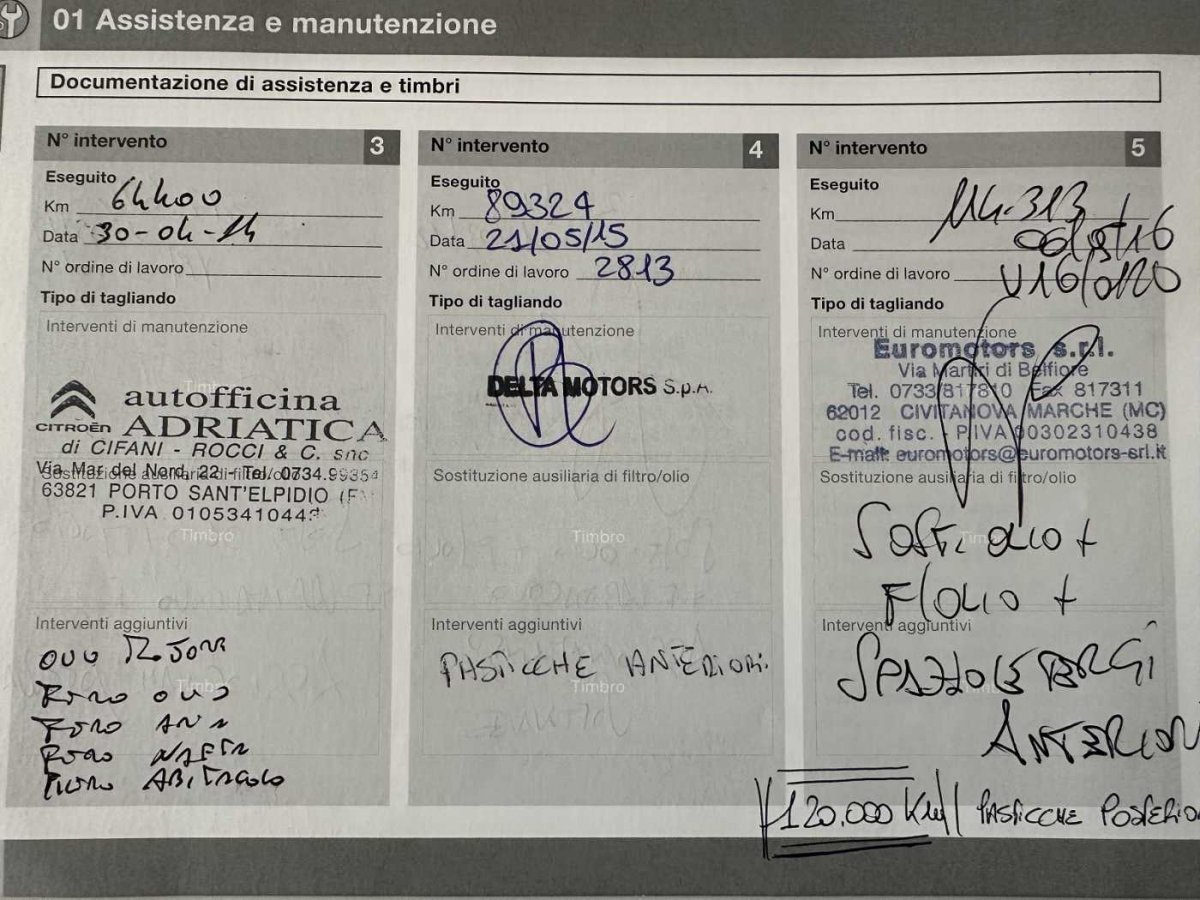 01 Assistenza e manutenzione
Documentazione di assistenza e timbri
N° intervento 3
Eseguito
Km 64400
Data 30-04-14
N° ordine di lavoro
Tipo di tagliando
Interventi di manutenzione
Timbro
CITROËN autofficina
ADRIATICA
di CIFANI - ROCCI & C. snc
Via Mar del Nord, 22 - Tel. 0734.99354
Sostituzione ausiliaria di filtro/olio
63821 PORTO SANT'ELPIDIO
P.IVA 0105341044
Timbro
Interventi aggiuntivi
OLIO
Timbro
FILTRO OLIO
FILTRO ARIA
FILTRO NAFTA
FILTRO ABITACOLO
N° intervento 4
Eseguito
Km 89324
Data 21/05/15
N° ordine di lavoro 2813
Tipo di tagliando
Interventi di manutenzione
DELTA MOTORS S.p.A.
Sostituzione ausiliaria di filtro/olio
Timbro
Interventi aggiuntivi
PASTICCHE ANTERIORI.
Timbro
N° intervento 5
Eseguito
Km 114.313
Data
N° ordine di lavoro V16/0120
Tipo di tagliando
Interventi di manutenzione
Euromotors s.r.l.
Via Martiri di Belfiore
Tel. 0733/817810 Fax 817311
62012 CIVITANOVA MARCHE (MC)
cod. fisc. - P.IVA 00302310438
E-mail: euromotors@euromotors-srl.it
Sostituzione ausiliaria di filtro/olio
SOST. OLIO +
F/OLIO +
Interventi aggiuntivi
SPAZZOLE TERGI
ANTERIORI
120.000 Km PASTICCHE POSTERIO